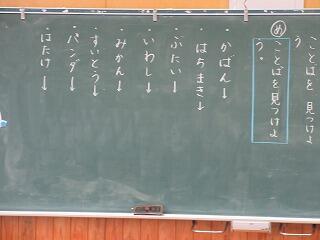 ことばを見つけよ
う
め ことばを見つけよ
う。
・かばん→
・はちまき→
・ぶたい→
・いわし→
・みかん→
・すいとう→
・パンダ→
・はたけ→